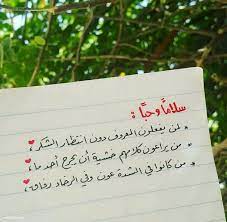 سلامًا وحبًا :
* لمن يفعلون المعروف دون انتظار الشكر ،
* من يراعون كلامهم خشية أن يجرح أحد ما ،
* من كانوا في الشدة عون وفي الرخاء رفاق ،